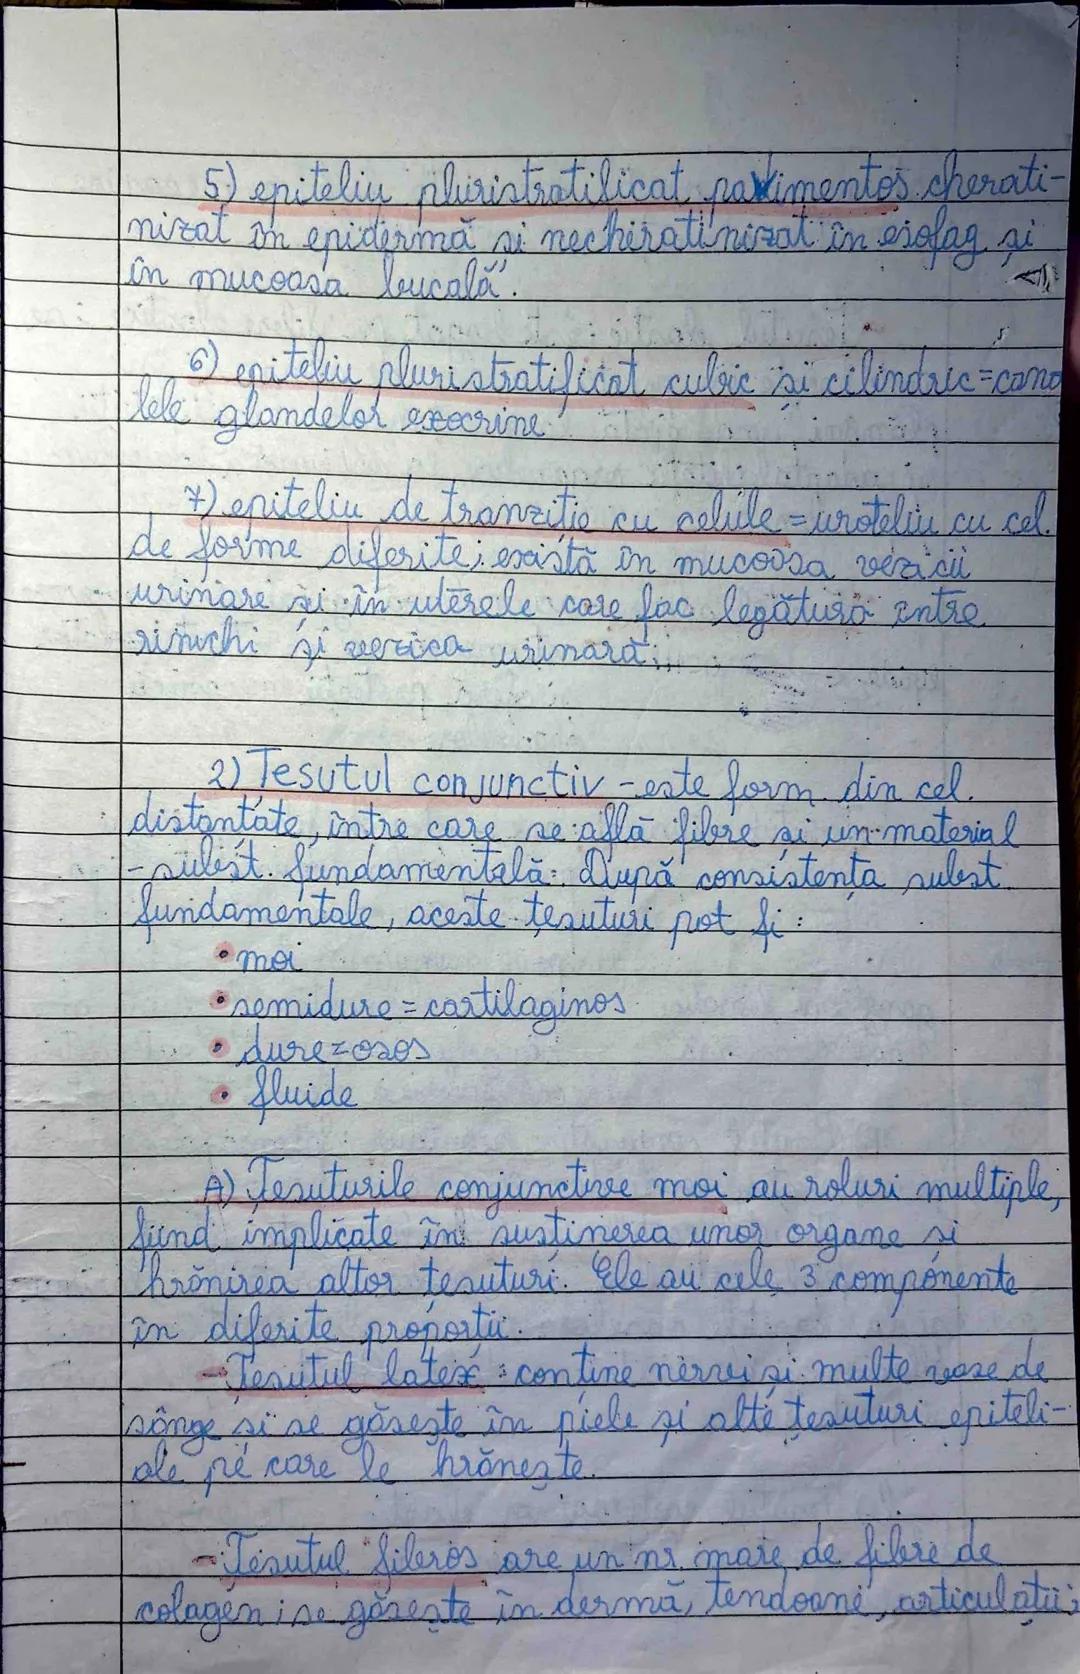 5) epiteliu pluristratificat pavimentos cherati-
nizat în epidermă și necheratinizat în esofag și
în mucoasa bucală.
6) epiteliu pluristratificat cubic și cilindric = cana
lele glandelor exocrine
7) epiteliu de tranziție cu celule = uroteliu cu cel.
de forme diferite; există în mucoasa vezicii
urinare și în uterele care fac legătura între
rinichi și vezica urinară;
2) Țesutul conjunctiv - este form. din cel.
distanțate, între care se află fibre și un material
- subst. fundamentală. După consistența subst.
fundamentale, aceste țesuturi pot fi:
• moi
• semidure = cartilaginos
• dure = osos
• fluide
A) Țesuturile conjunctive moi au roluri multiple,
fiind implicate în susținerea unor organe și
hrănirea altor țesuturi. Ele au cele 3 componente
în diferite proporții.
- Țesutul latex: conține nervi și multe vase de
sânge și se găsește în piele și alte țesuturi epiteli-
ale pe care le hrănește.
- Țesutul fibros are un nr. mare de fibre de
colagen; se găsește în dermă, tendoane, articulații;